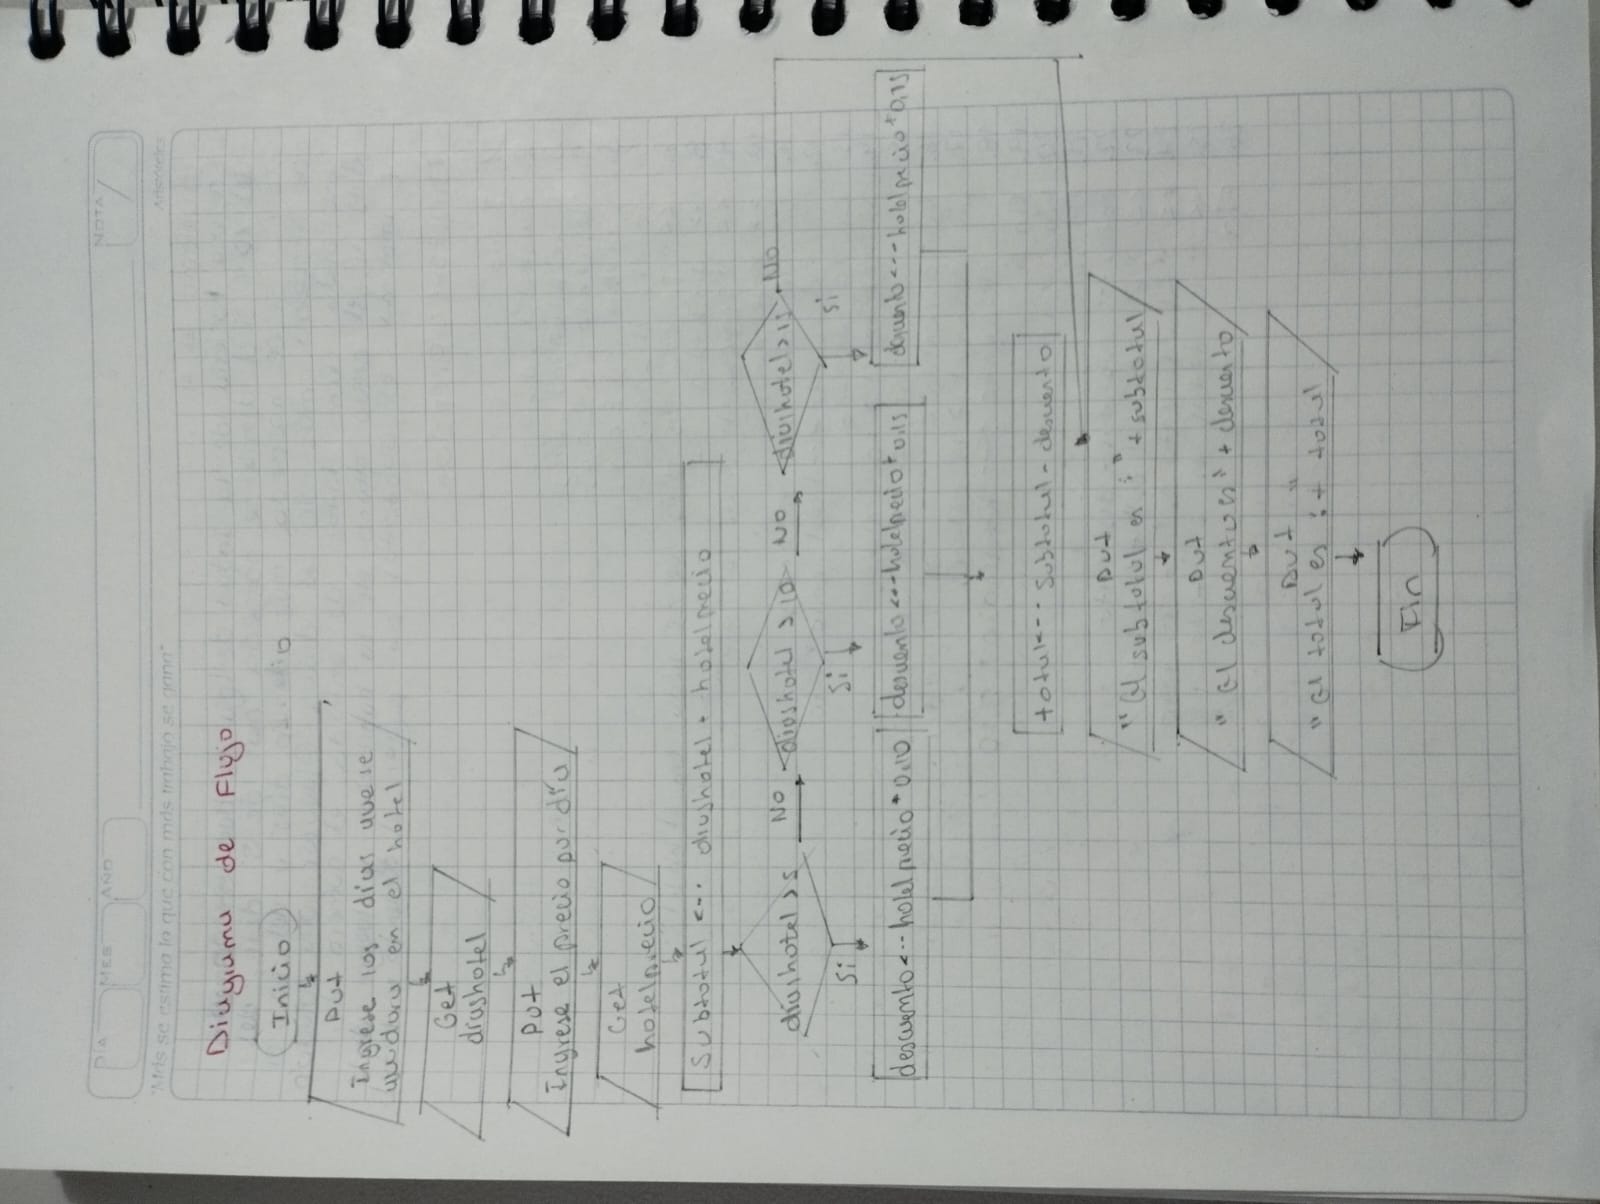 DÍA MES AÑO NOTA
"Más se estima lo que con más trabajo se gana" Aristóteles
Diagrama de Flujo
Inicio
Put
Ingrese los días que se
quedara en el hotel
Get
diashotel
Put
Ingrese el precio por día
Get
hotelprecio
Subtotal <--- diashotel * hotelprecio
diashotel >5 NO diashotel >10 NO diashotel >15 NO
Si Si Si
descuento<--- hotelprecio * 0.10 descuento<---hotelprecio*0.15 descuento<---hotelprecio*0.15
total<--- subtotal - descuento
Put
"El subtotal es :" + subtotal
Put
"El descuento es" + descuento
Put
"El total es :" + total
Fin